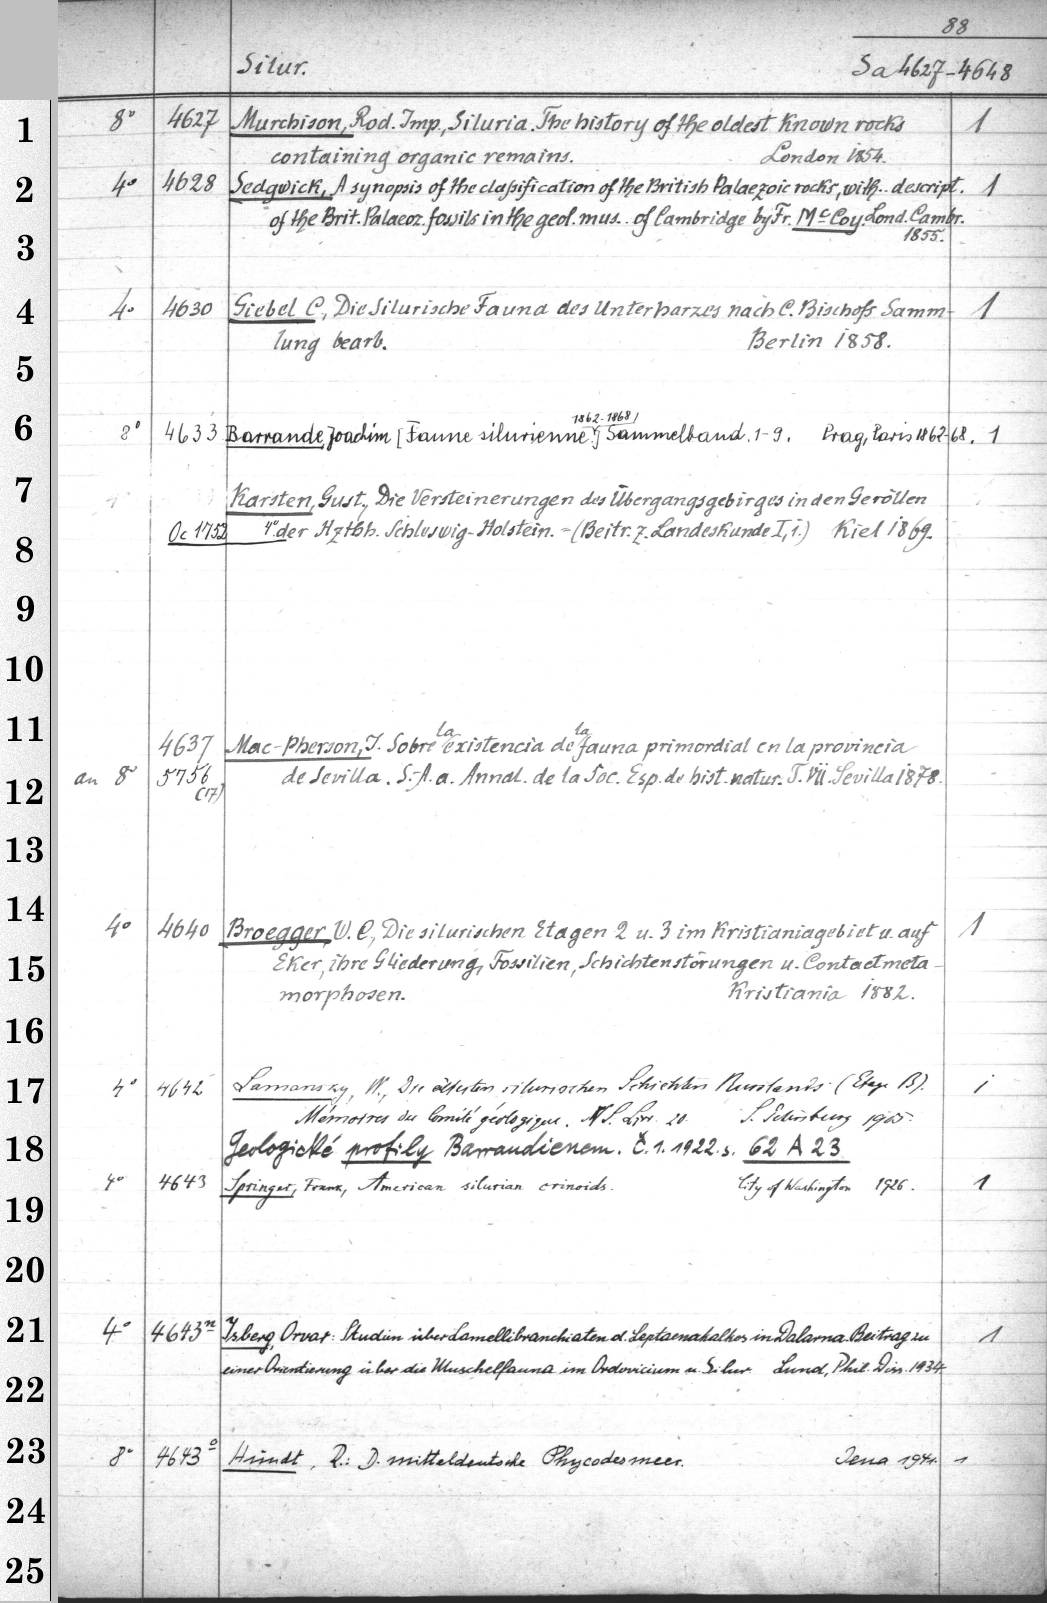 88
Silur. Sa 4627-4648
1 8° 4627 Murchison, Rod. Imp., Siluria. The history of the oldest known rocks 1
containing organic remains. London 1854.
2 4° 4628 Sedgwick, A synopsis of the claßification of the British Palaezoic rocks, with.. descript. 1
of the Brit. Palaeoz. fossils in the geol. mus.. of Cambridge by Fr. McCoy. Lond. Cambr.
3 1855.
4 4° 4630 Giebel C., Die silurische Fauna des Unterharzes nach C. Bischofs Samm- 1
lung bearb. Berlin 1858.
5
1862-1868
6 8° 4633 Barrande Joachim [Faune silurienne.] Sammelband. 1-9. Prag, Paris 1862-68. 1
7 4° Karsten, Gust., Die Versteinerungen des Übergangsgebirges in den Geröllen
8 Oc 1752 4° der Hzthh. Schleswig-Holstein. = (Beitr. z. Landeskunde I, 1.) Kiel 1869.
9
10
11 la la
4637 Mac-Pherson, J. Sobre existencia de fauna primordial en la provincia
12 an 8° 5756 de Sevilla. S.-A. a. Annal. de la Soc. Esp. de hist. natur. T. VII. Sevilla 1878.
(17)
13
14 4° 4640 Broegger, W. C., Die silurischen Etagen 2 u. 3 im Kristianiagebiet u. auf 1
15 Eker, ihre Gliederung, Fossilien, Schichtenstörungen u. Contactmeta-
morphosen. Kristiania 1882.
16
17 4° 4642 Lamansky, W., Die ältesten silurischen Schichten Russlands (Etage B). 1
Mémoires du Comité géologique. N.S. Livr. 20. S. Petersburg 1905.
18 Geologické profily Barrandienem. Č. 1. 1922. s. 62 A 23
4° 4643 Springer, Frank, American silurian crinoids. City of Washington 1926. 1
19
20
21 4° 4643n Isberg, Orvar: Studien über Lamellibranchiaten d. Leptaenakalkes in Dalarna. Beitrag zu 1
einer Orientierung über die Muschelfauna im Ordovicium u. Silur Lund, Phil. Diss. 1934.
22
23 8° 4643o Hundt, R.: D. mitteldeutsche Phycodesmeer. Jena 1941. 1
24
25